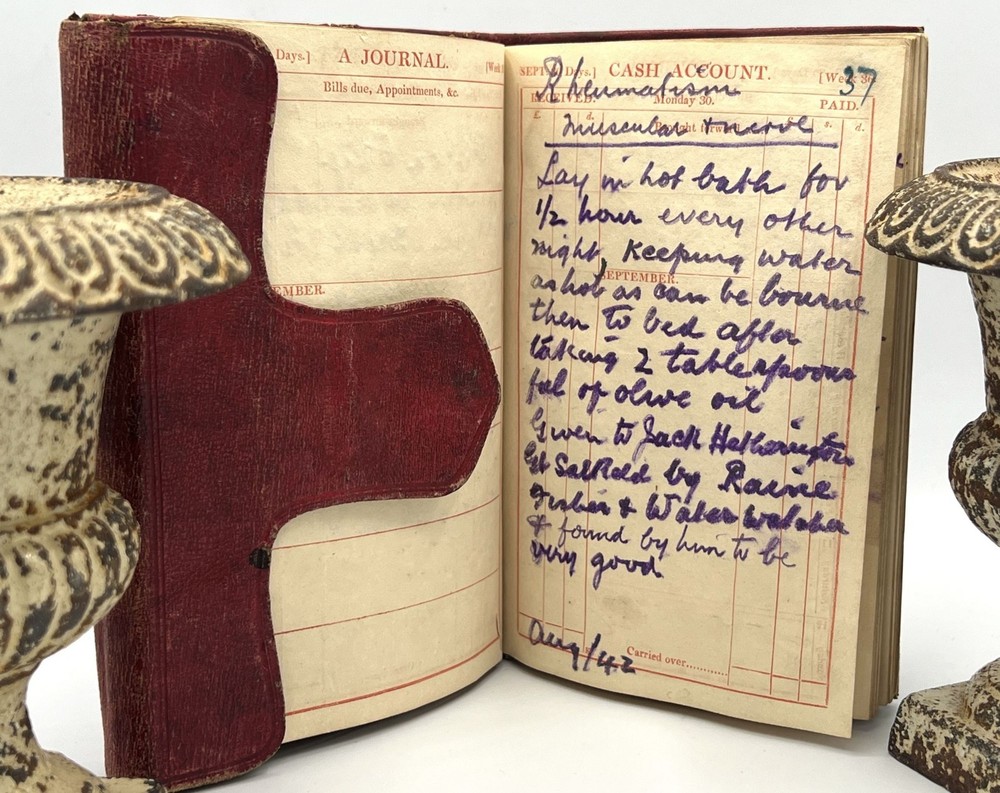 Days.] A JOURNAL.
Bills due, Appointments, &c.
EMBER.
SEPT. Days.] CASH ACCOUNT. [Week 37
Rheumatism
RECEIVED. Monday 30. PAID.
£ d. s. d.
Brought forward
Muscular & nerve
Lay in hot bath for
1/2 hour every other
night, Keeping water
SEPTEMBER.
as hot as can be bourne
then to bed after
taking 2 tablespoons
ful of olive oil
Given to Jack Hetherington
Gt Salkeld by Raine
Fisher & Water watcher
& found by him to be
very good.
Aug/42
Carried over............